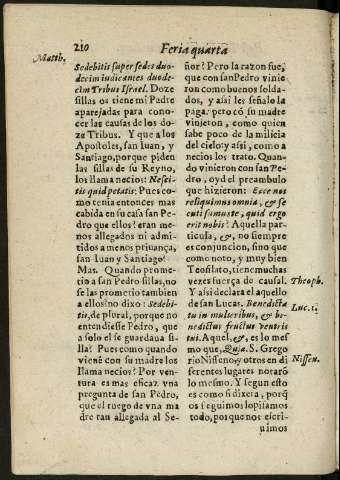 210 Feria quarta
Matth.
Sedebitis super sedes duo-
decim iudicantes duode-
cim Tribus Israel. Doze
sillas os tiene mi Padre
aparejadas para cono-
cer las causas de los do-
ze Tribus. Y que a los
Apostoles, san Iuan, y
Santiago, porque piden
las sillas de su Reyno,
los llama necios: Nesci-
tis quid petatis. Pues co-
mo tenia entonces mas
cabida en su casa san Pe-
dro que ellos? eran me-
nos allegados ni admi-
tidos a menos priuança,
san Iuan y Santiago?
Mas. Quando prome-
tio a san Pedro sillas, no
se las prometio tambien
a ellos? no dixo: Sedebi-
tis, de plural, porque no
entendiesse Pedro, que
a solo el se guardaua si-
lla? Pues como quando
viene con su madre los
llama necios? Por ven-
tura es mas eficaz vna
pregunta de san Pedro,
que el ruego de vna ma
dre tan allegada al Se-
ñor? Pero la razon fue,
que con san Pedro vinie
ron como buenos solda-
dos, y asi les señalo la
paga: pero cõ su madre
vinieron, como quien
sabe poco de la milicia
del cielo: y asi, como a
necios los trato. Quan-
do vinieron con san Pe-
dro, oyd el preambulo
que hizieron: Ecce nos
reliquimus omnia, & se
cuti sumus te, quid ergo
erit nobis? Aquella par-
ticula, &, no siempre
es conjuncion, sino que
como noto, y muy bien
Teofilato, tiene muchas
vezes fuerça de causal.
Theoph.
Y asi declara el aquello
de san Lucas. Benedicta
Luc. 1.
tu in mulieribus, & be-
nedictus fructus ventris
tui. Aquel, &, es lo mes
mo que, Quia. S. Grego
rio Nisseno, y otros en di
Nissen.
ferentes lugares notarõ
lo mesmo. Y segun esto
es como si dixera, porq̃
os seguimos lo pisamos
todo, porque nos escri-
uimos